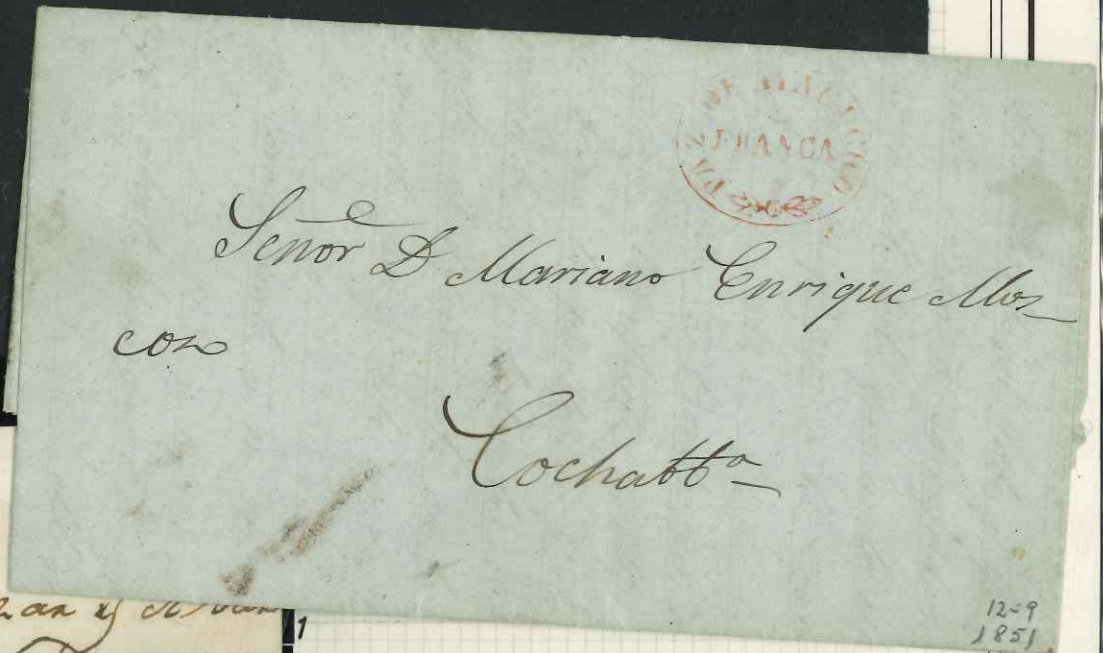 PAZ DE AYACUCHO
FRANCA
Señor D Mariano Enrique Mos-
coso
Cochabba
12-9
1851
1